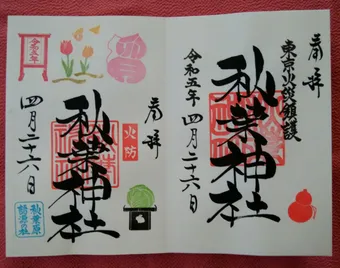 奉拝
東京火災鎮護
秋葉神社
令和五年
四月二十六日
奉拝
火防
秋葉神社
令和五年
四月二十六日
秋葉原